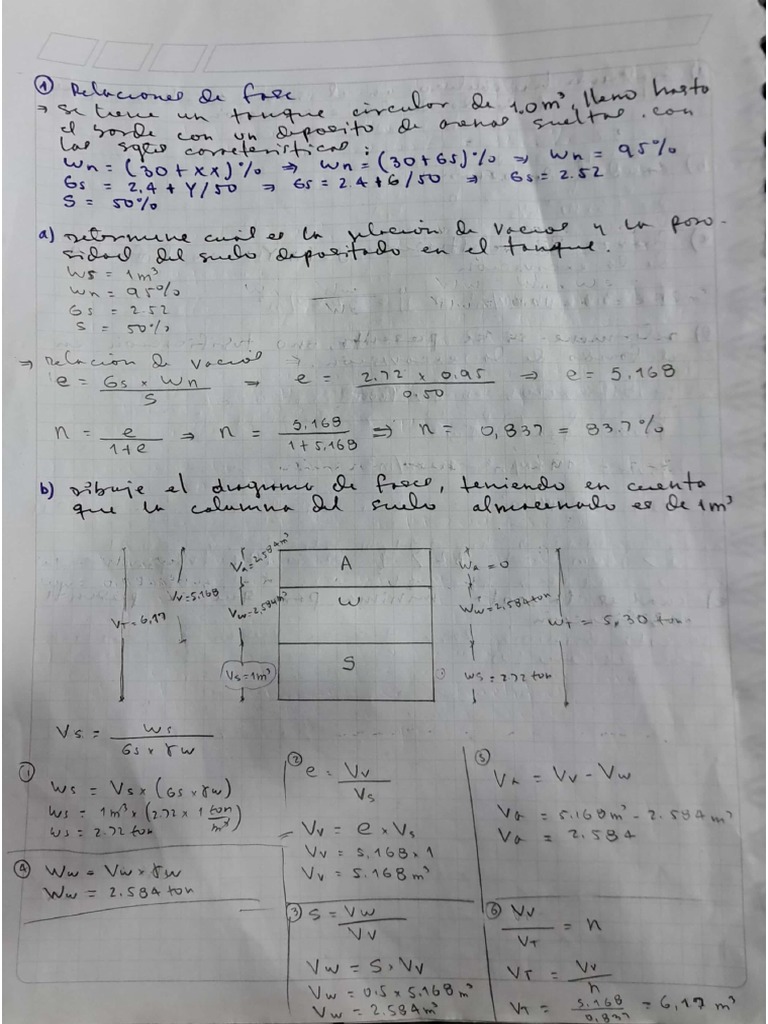 ① Relaciones de fase
→ se tiene un tanque circular de 1.0m³, lleno hasta
el borde con un deposito de arenas sueltas. con
las sgtes correteristicas:
Wn = (30+xx)% ⇒ Wn = (30+65)% ⇒ Wn = 95%
Gs = 2.4 + Y/50 ⇒ Gs = 2.4+6/50 ⇒ Gs = 2.52
S = 50%
a) Determine cual es la relación de vacios y la poro-
sidad del suelo depositado en el tanque.
Ws = 1m³
Wn = 95%
Gs = 2.52
S = 50%
⇒ Relacion de vacios
e = Gs x Wn / S ⇒ e = 2.72 x 0.95 / 0.50 ⇒ e = 5.168
n = e / 1+e ⇒ n = 5.168 / 1+5.168 ⇒ n = 0,837 = 83.7%
b) Dibuje el diagrama de fases, teniendo en cuenta
que la columna del suelo almacenado es de 1m³
Va=2.584m³ A Wa=0
Vv=5.168
Vw=2.584m³ W Ww=2.584ton
VT=6,17 WT=5,30 ton
Vs=1m³ S Ws=2.72 ton
Vs = Ws / Gs x γw
① Ws = Vs x (Gs x γw)
Ws = 1m³ x (2.72 x 1 ton/m³)
Ws = 2.72 ton
④ Ww = Vw x γw
Ww = 2.584 ton
② e = Vv / Vs
Vv = e x Vs
Vv = 5,168 x 1
Vv = 5.168 m³
③ S = Vw / Vv
Vw = S x Vv
Vw = 0.5 x 5.168 m³
Vw = 2.584m³
⑤ Va = Vv - Vw
Va = 5.168m³ - 2.584 m³
Va = 2.584
⑥ Vv / VT = n
VT = Vv / n
VT = 5.168 / 0.837 = 6,17 m³